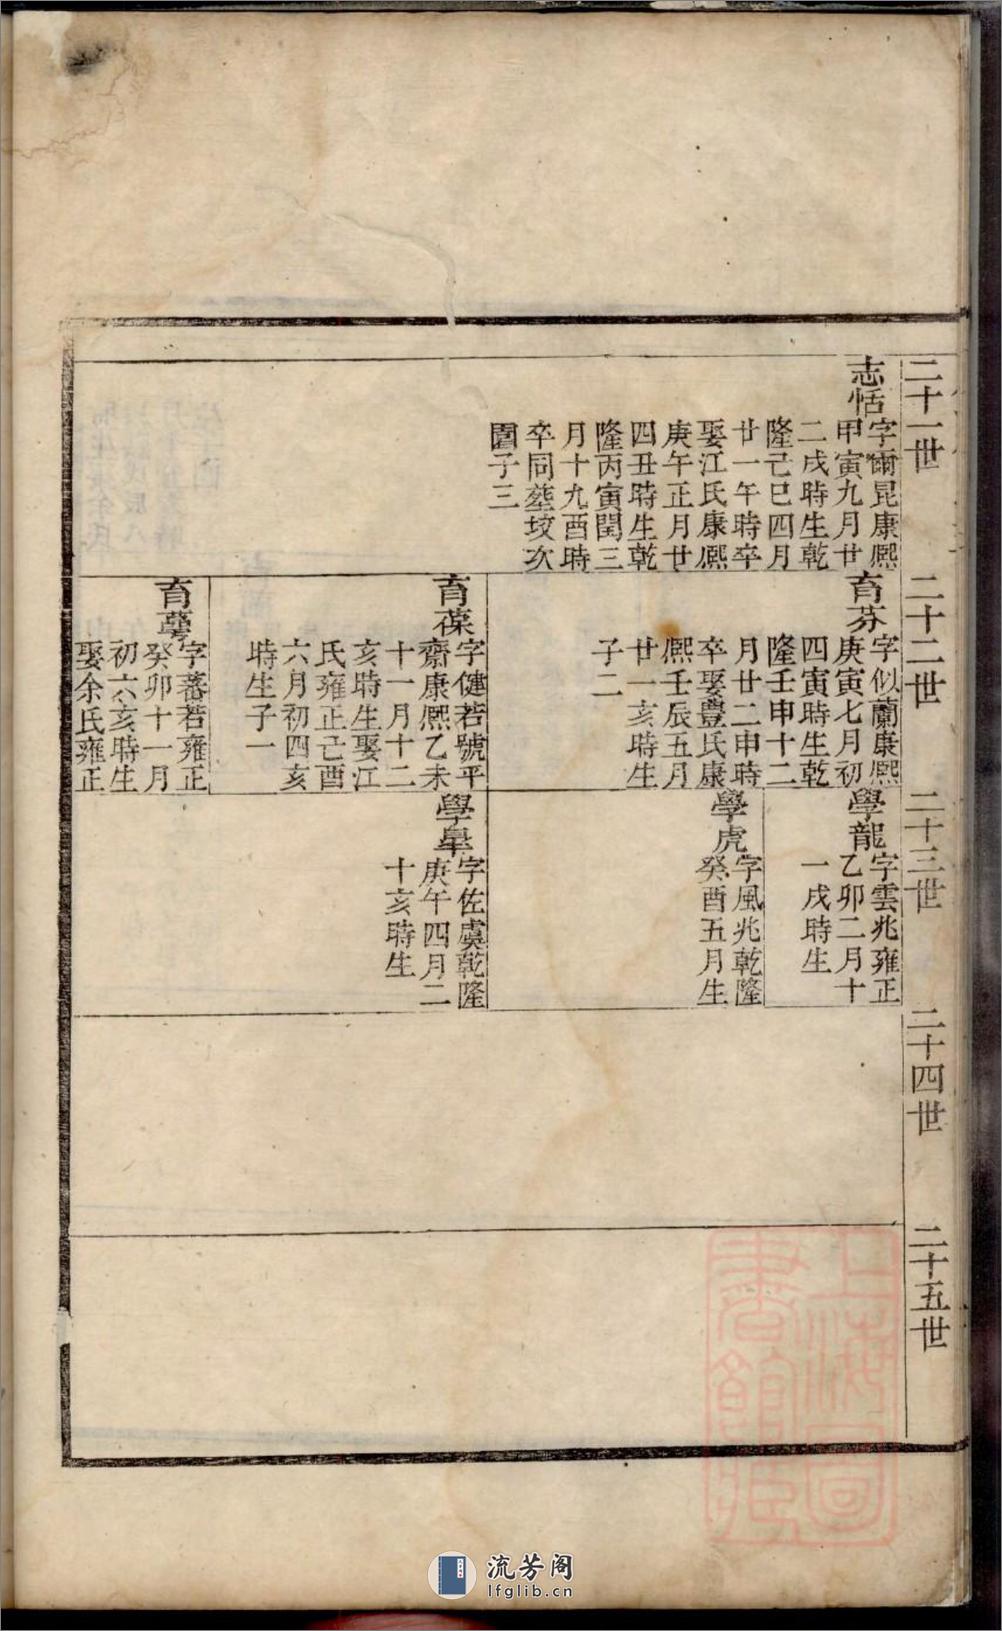 二十一世
志恬
字爾昆康熙
甲寅九月廿
二戌時生乾
隆己巳四月
廿一午時卒
娶江氏康熙
庚午正月廿
四丑時生乾
隆丙寅閏三
月十九酉時
卒同塟坟次
圖子三
二十二世
育芬
字似蘭康熙
庚寅七月初
四寅時生乾
隆壬申十二
月廿二申時
卒娶豊氏康
熙壬辰五月
廿一亥時生
子二
育葆
字健若號平
齋康熙乙未
十一月十二
亥時生娶江
氏雍正己酉
六月初四亥
時生子一
育
字蕃若雍正
癸卯十一月
初六亥時生
娶余氏雍正
二十三世
學龍
字雲兆雍正
乙卯二月十
一戌時生
學虎
字風兆乾隆
癸酉五月生
學皐
字佐虞乾隆
庚午四月二
十亥時生
二十四世
二十五世
上海圖
書館藏
流芳阁
lfglib.cn